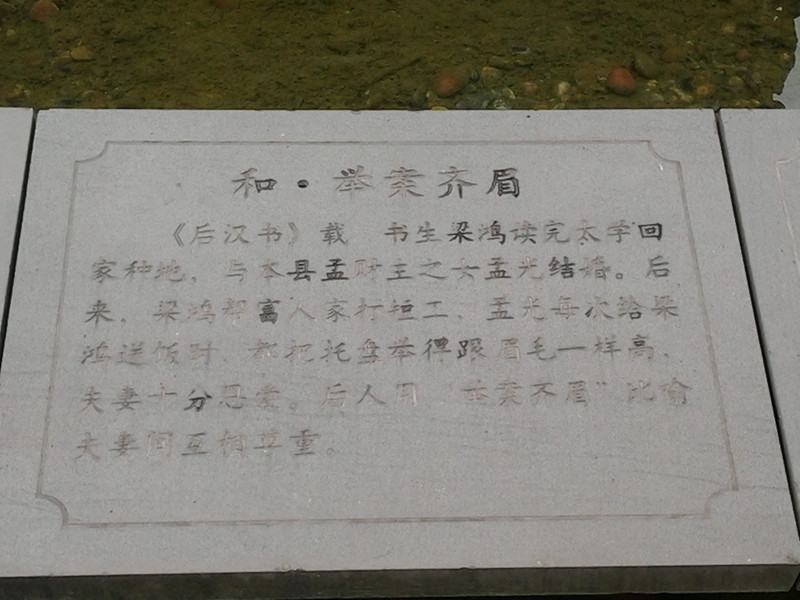 和·举案齐眉
《后汉书》载 书生梁鸿读完太学回
家种地，与本县孟财主之女孟光结婚。后
来，梁鸿帮富人家打短工，孟光每次给梁
鸿送饭时，都把托盘举得跟眉毛一样高，
夫妻十分恩爱。后人用“举案齐眉”比喻
夫妻间互相尊重。